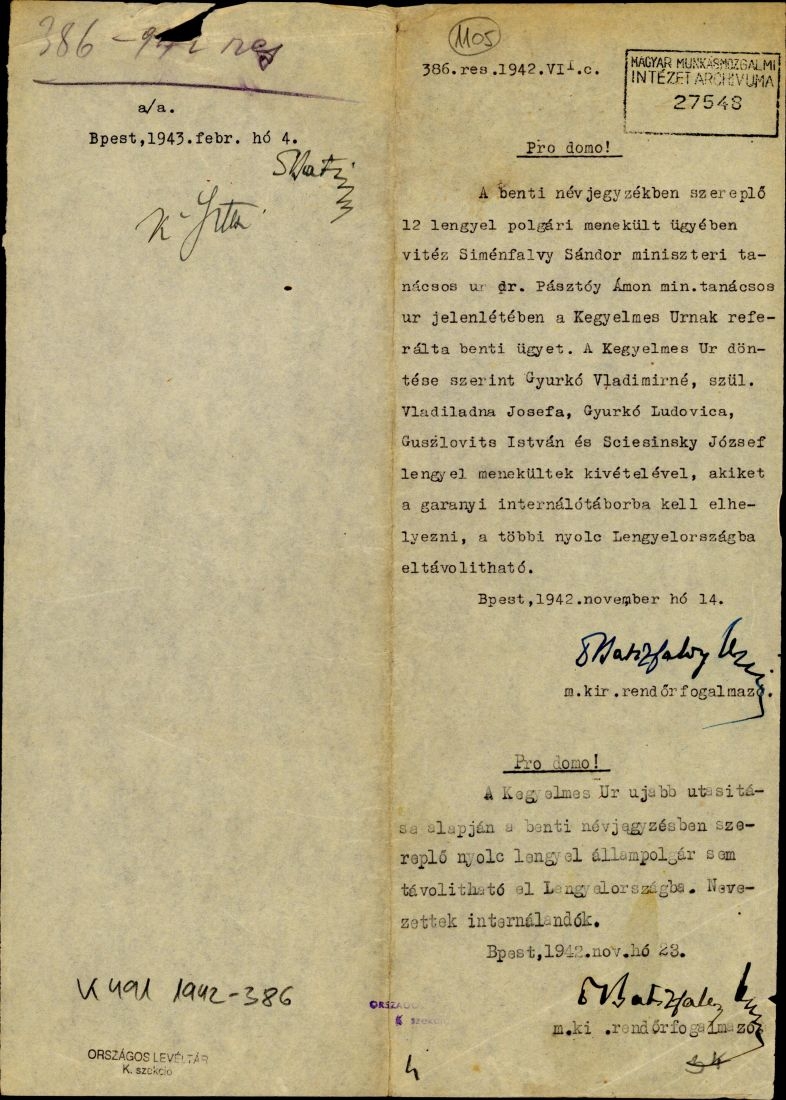 386-942 res
a/a.
Bpest,1943.febr. hó 4.
K 491 1942-386
ORSZÁGOS LEVÉLTÁR
K. szekció
1105
386.res.1942.VII.c.
MAGYAR MUNKÁSMOZGALMI
INTÉZET ARCHIVUMA
27548
Pro domo!
A benti névjegyzékben szereplő
12 lengyel polgári menekült ügyében
vitéz Siménfalvy Sándor miniszteri ta-
nácsos ur dr. Pásztóy Ámon min.tanácsos
ur jelenlétében a Kegyelmes Urnak refe-
rálta benti ügyet. A Kegyelmes Ur dön-
tése szerint Gyurkó Vladimirné, szül.
Vladiladna Josefa, Gyurkó Ludovica,
Guszlovits István és Sciesinsky József
lengyel menekültek kivételével, akiket
a garanyi internálótáborba kell elhe-
lyezni, a többi nyolc Lengyelországba
eltávolitható.
Bpest,1942.november hó 14.
Batizfalvy
m.kir.rendőrfogalmazó.
Pro domo!
A Kegyelmes Ur ujabb utasitá-
sa alapján a benti névjegyzésben sze-
replő nyolc lengyel állampolgár sem
távolitható el Lengyelországba. Neve-
zettek internálandók.
Bpest,1942.nov.hó 23.
Batizfalvy
m.ki .rendőrfogalmazó.
ORSZÁGO
K szekció